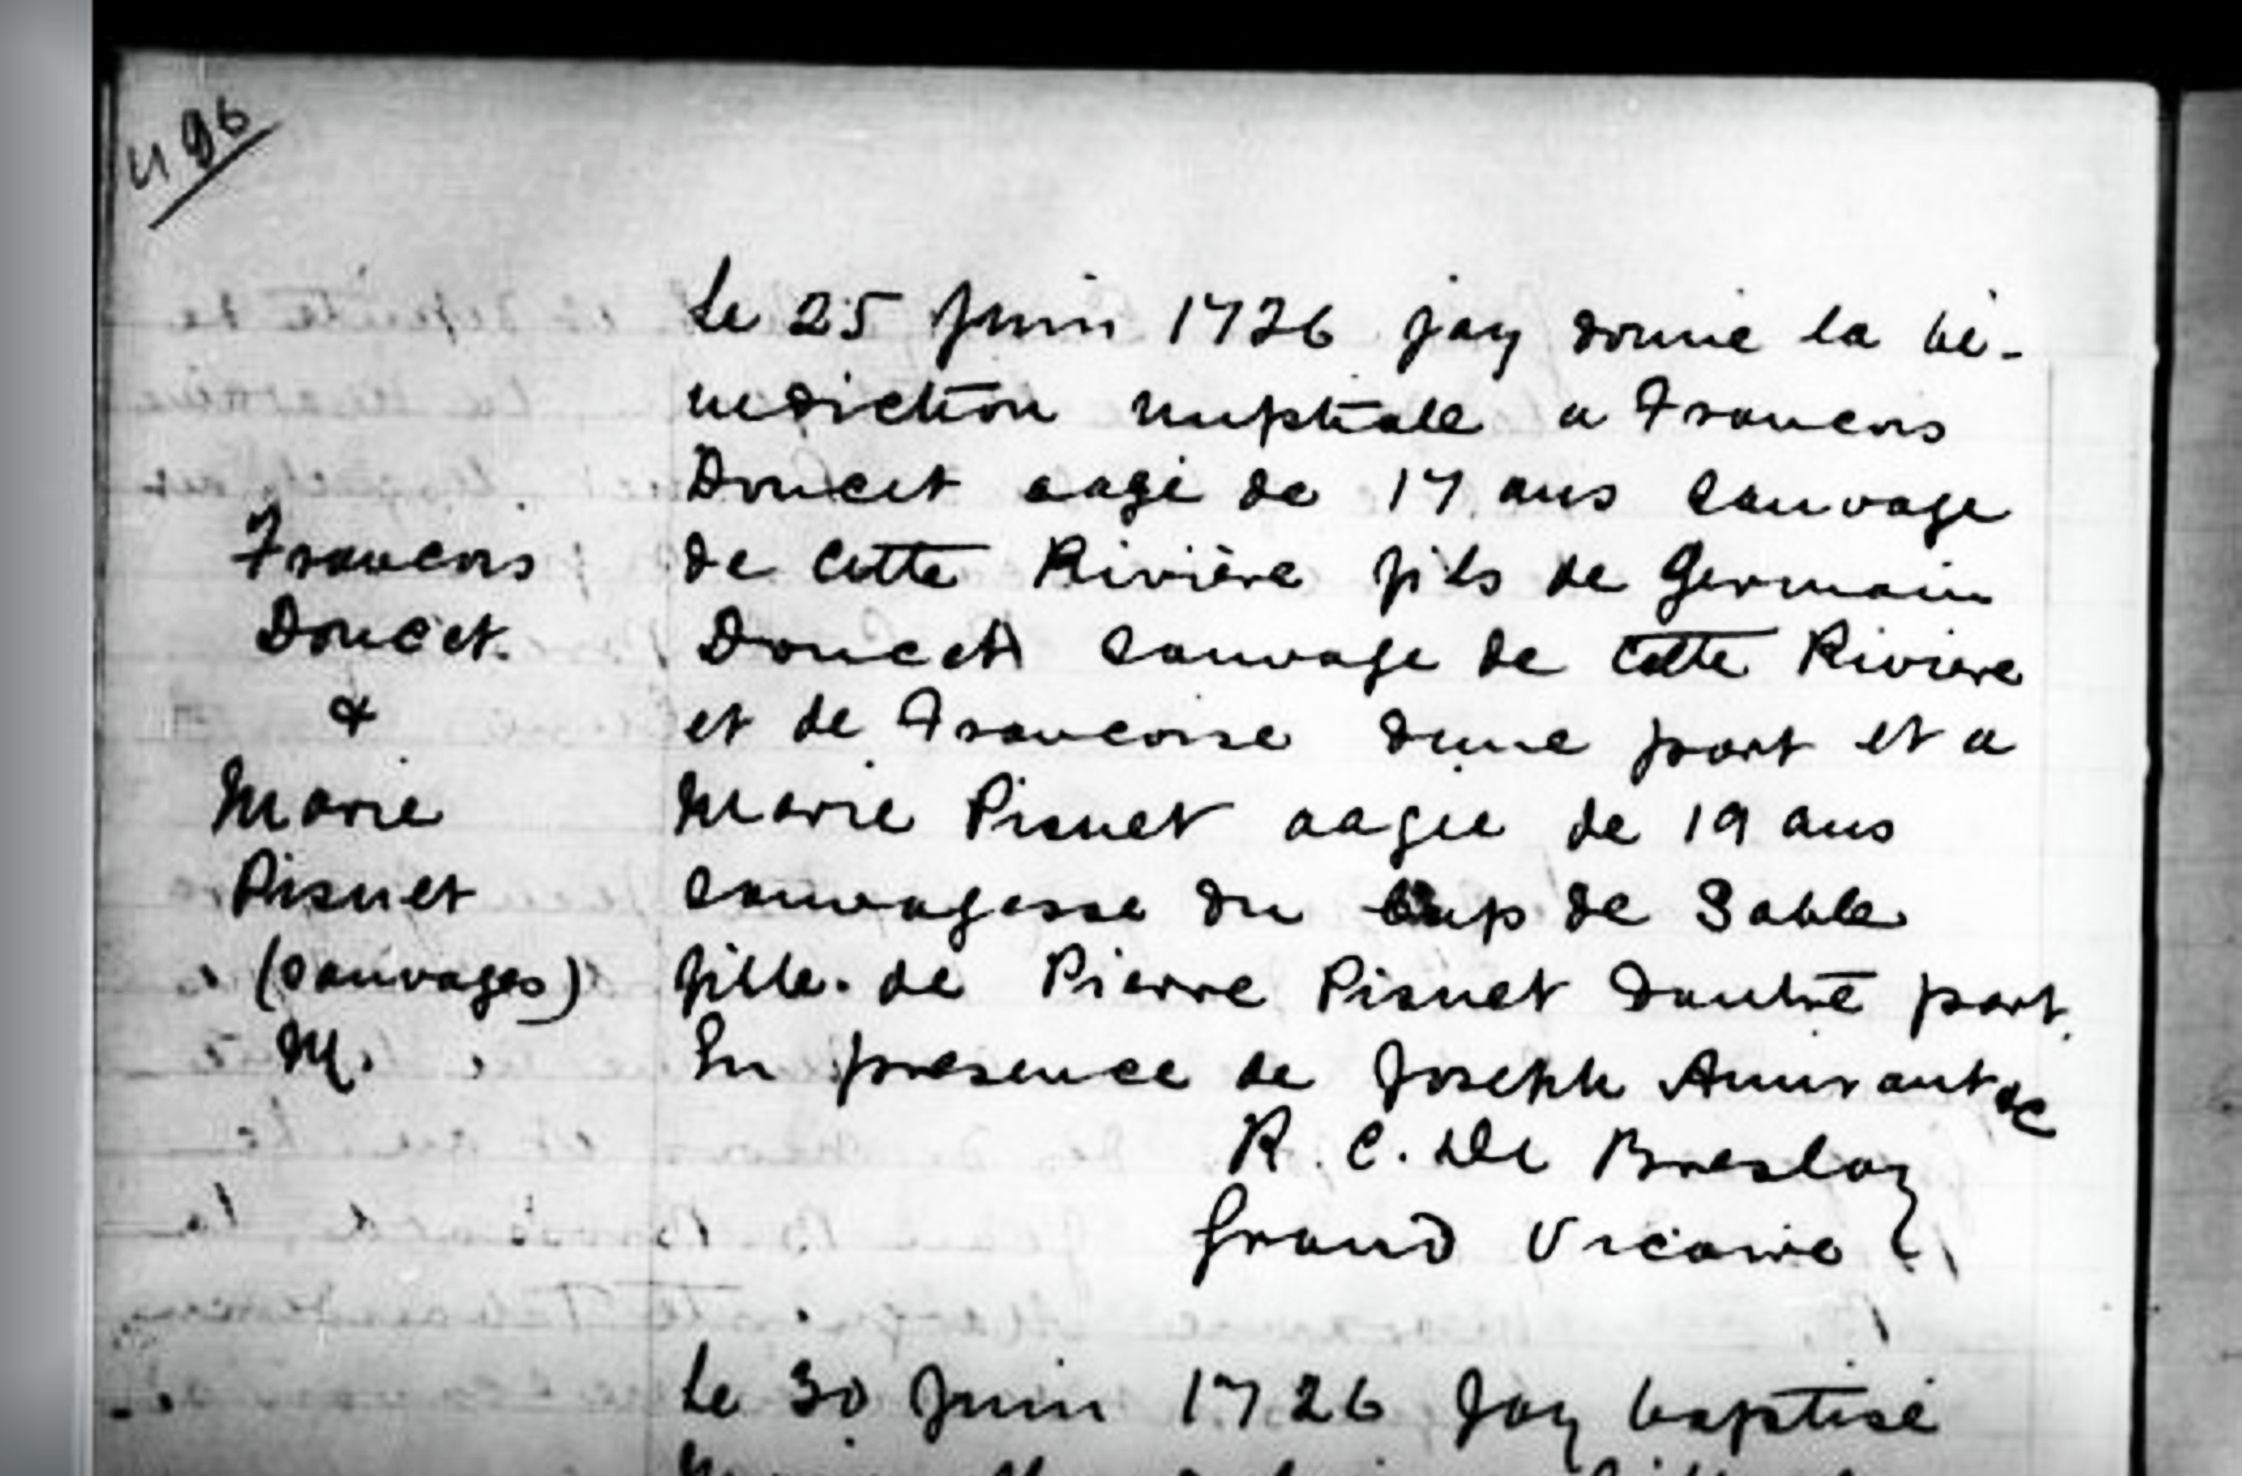 496
Le 25 Juin 1726 jay donné la bé-
nediction nuptiale a Francois
Doucet aagé de 17 ans sauvage
de cette Rivière fils de Germain
Doucet sauvage de cette Riviere
et de Francoise dune part et a
Marie Pisnet aagée de 19 ans
sauvagesse du Cap de Sable
fille de Pierre Pisnet dautre part.
En presence de Joseph Amirant &c
R. C. De Breslay
Grand Vicaire
Francois
Doucet.
&
Marie
Pisnet
(sauvages)
M.
Le 30 Juin 1726 Jay baptisé